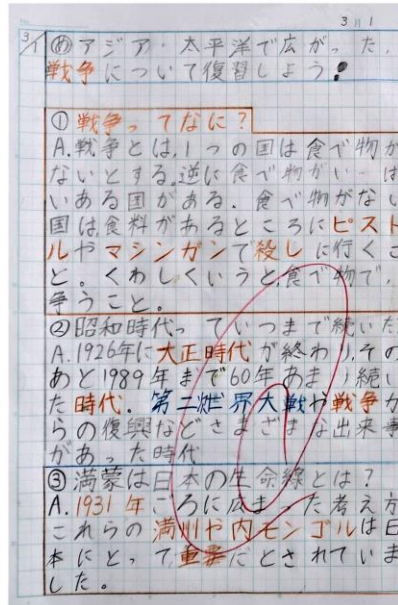 3月1
3/1
め アジア・太平洋で広がった、
戦争について復習しよう!
① 戦争ってなに?
A.戦争とは、1つの国は食べ物が
ないとする。逆に食べ物がいーぱ
いある国がある。食べ物がない
国は食料があるところにピスト
ルやマシンガンで殺しに行くこ
と。くわしくいうと、食べ物で、
争うこと。
②昭和時代っていつまで続いた
A.1926年に大正時代が終わり、その
あと1989年まで60年あまり続い
た時代。第二世界大戦や戦争か
らの復興などさまざまな出来事
があった時代
③満蒙は日本の生命線とは?
A.1931年ごろに広まった考え方
これらの満川や内モンゴルは日
本にとって重要だとされていま
した。